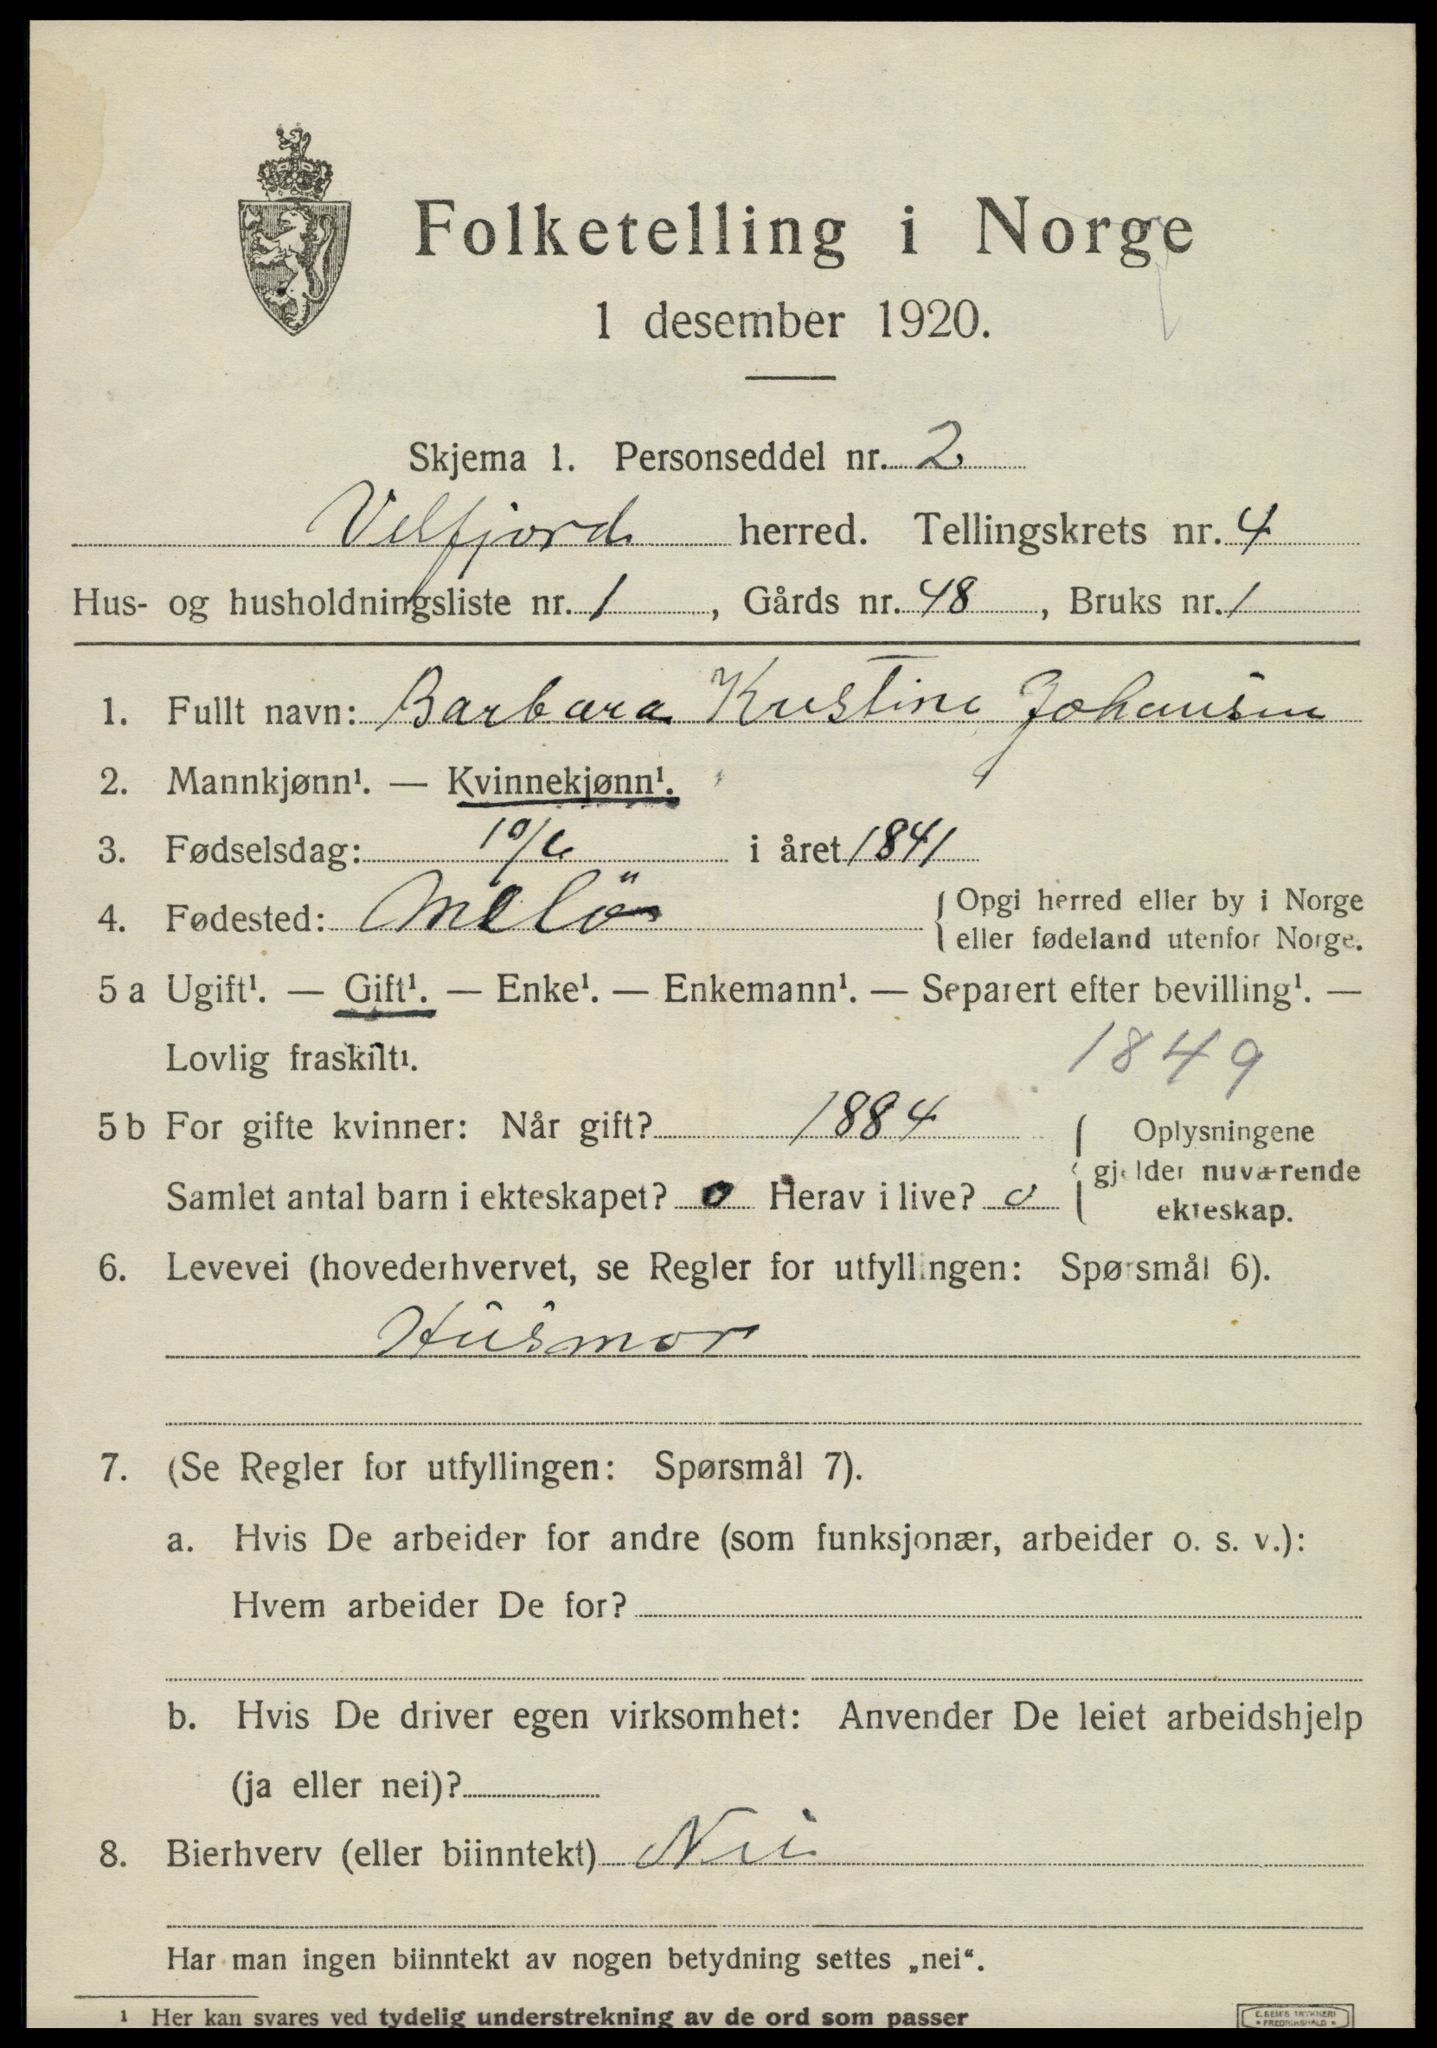 Folketelling i Norge
1 desember 1920.
Skjema 1. Personseddel nr. 2
Velfjord herred. Tellingskrets nr. 4
Hus- og husholdningsliste nr. 1, Gårds nr. 48, Bruks nr. 1
1. Fullt navn: Barbara Kristine Johansen
2. Mannkjønn¹. — Kvinnekjønn¹.
3. Fødselsdag: 10/6 i året 1841
4. Fødested: Melö { Opgi herred eller by i Norge
eller fødeland utenfor Norge.
5 a Ugift¹. — Gift¹. — Enke¹. — Enkemann¹. — Separert efter bevilling¹. —
Lovlig fraskilt¹. 1849
5 b For gifte kvinner: Når gift? 1884 { Oplysningene
gjelder nuværende
Samlet antal barn i ekteskapet? 0 Herav i live? 0 ekteskap.
6. Levevei (hovederhvervet, se Regler for utfyllingen: Spørsmål 6).
Husmor
7. (Se Regler for utfyllingen: Spørsmål 7).
a. Hvis De arbeider for andre (som funksjonær, arbeider o. s. v.):
Hvem arbeider De for?
b. Hvis De driver egen virksomhet: Anvender De leiet arbeidshjelp
(ja eller nei)?
8. Bierhverv (eller biinntekt) Nei
Har man ingen biinntekt av nogen betydning settes „nei“.
¹ Her kan svares ved tydelig understrekning av de ord som passer
E. SEM'S TRYKKERI
FREDRIKSHALD